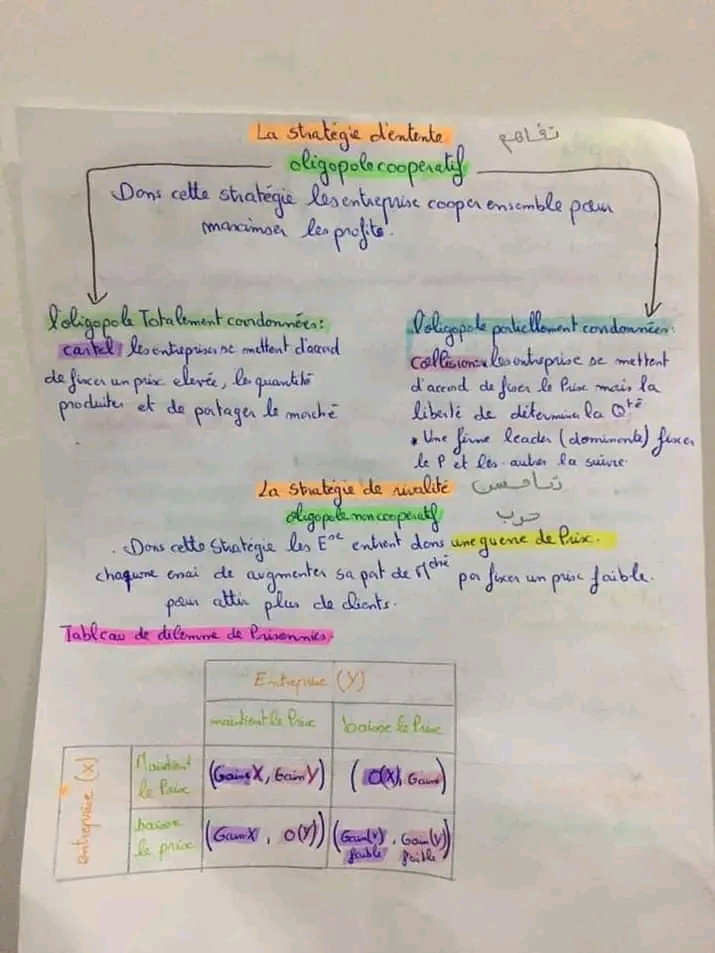 La stratégie d'entente تفاهم
oligopole cooperatif
Dans cette stratégie les entreprise cooper ensemble pour
maximser les profits.
l'oligopole Totalement coordonnées:
cartel: les entreprises se mettent d'accord
de fixer un prix elevée, les quantité
produites et de partager le marché
l'oligopole partiellement coordonnées:
Collision: les entreprise se mettent
d'accord de fixer le Prix mais la
liberté de déterminer la Qté
• Une firme leader (dominante) fixer
le P et les autres la suivre.
La stratégie de rivalité تنافس
oligopole non cooperatif حرب
. Dans cette Stratégie les Ese entrent dans une guerre de Prix.
chaqune essai de augmenter sa part de Mché par fixer un prix faible.
pour attir plus de clients.
Tableau de dilemme de Prisonnies.
Entreprise (Y)
maintient le Prix baisse le Prix
entreprise (x)
Maintient
le Prix
(Gains X, Gain Y) (O(X), Gains)
baisse
le prix
(Gain X, O(Y)) (Gain(x) faible, Gain(Y) faible)